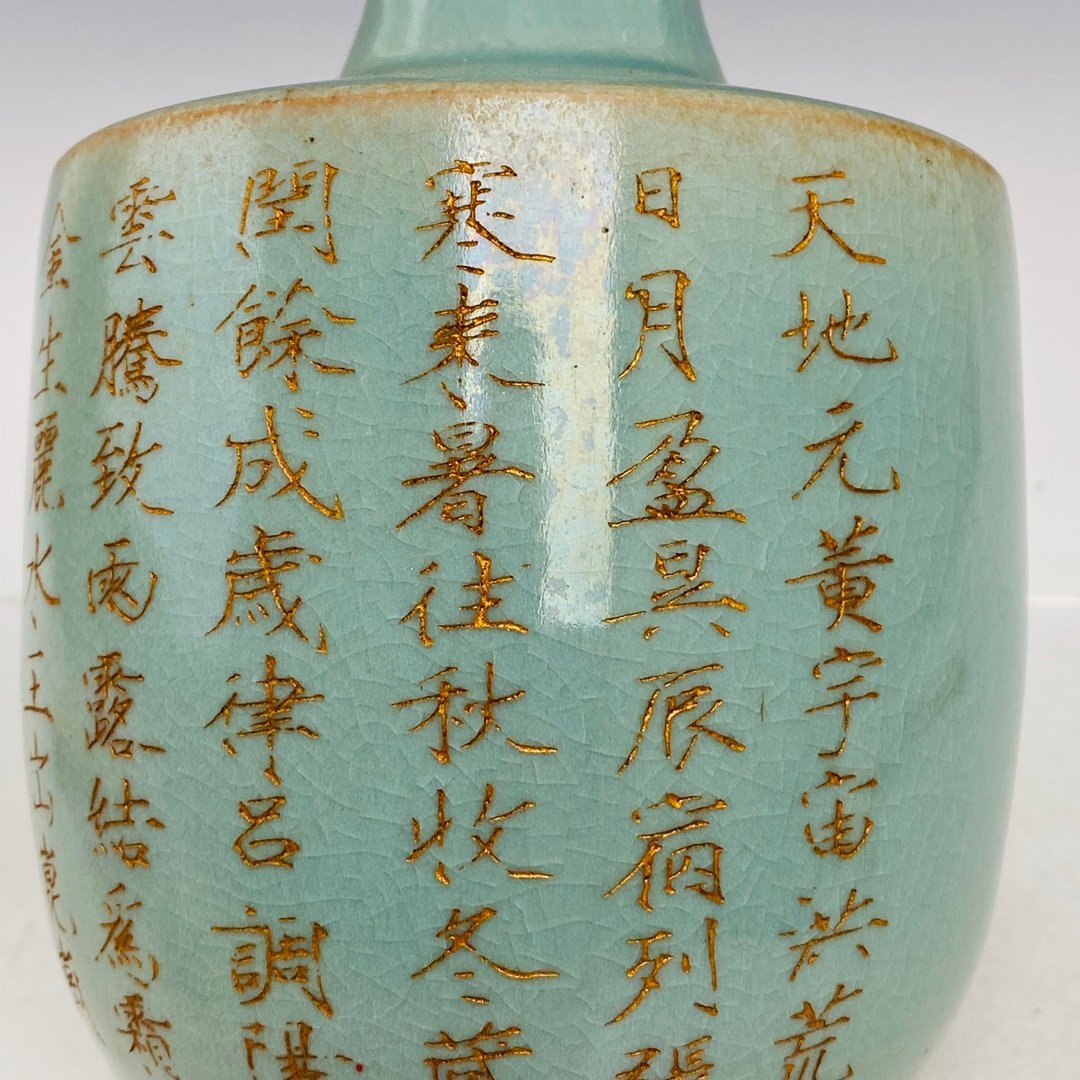 天地元黄宇宙洪荒
日月盈昃辰宿列張
寒來暑往秋收冬藏
閏餘成歲律呂調陽
雲騰致雨露結爲霜
金生麗水玉出崑